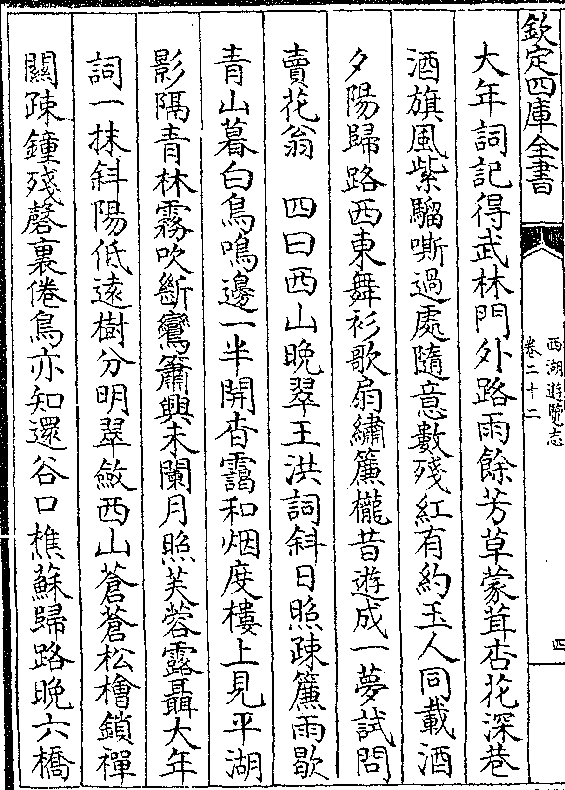 欽定四庫全書
西湖遊覽志
卷二十二
四
大年詞記得武林門外路雨餘芳草蒙茸杏花深巷
酒旗風紫騮嘶過處隨意數殘紅有約玉人同載酒
夕陽歸路西東舞衫歌扇繡簾櫳昔遊成一夢試問
賣花翁　四曰西山晚翠王洪詞斜日照疎簾雨歇
青山暮白鳥鳴邊一半開杳靄和烟度樓上見平湖
影隔青林霧吹斷鸞簫興未闌月照芙蓉露聶大年
詞一抹斜陽低遠樹分明翠斂西山蒼蒼松檜鎖禪
關疎鐘殘磬裏倦鳥亦知還谷口樵蘇歸路晚六橋